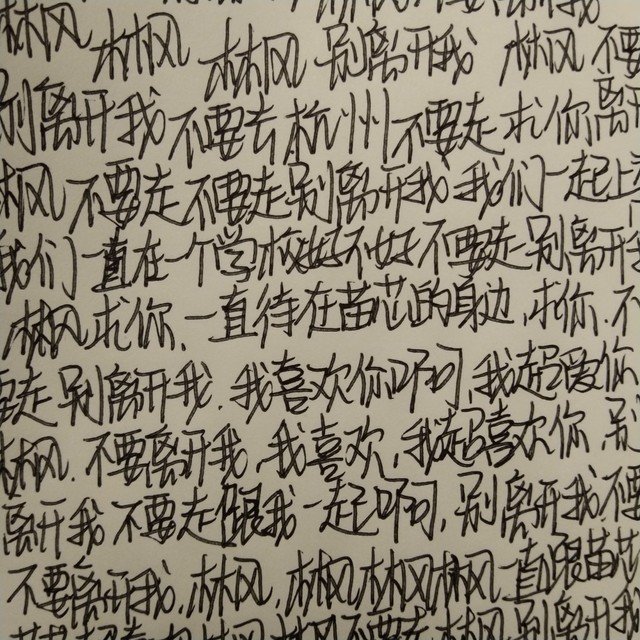 林风 林风 林风 别离开我 林风 不要
别离开我 不要去杭州 不要走 求你离开
林风 不要走 不要走 别离开我 我们一起上
我们一直在一个学校好不好 不要走 别离开我
林风求你,一直待在苗芯的身边,求你.不
要走 别离开我.我喜欢你啊,我超爱你
林风.不要离开我,我喜欢,我超喜欢你,别
离开我 不要走跟我一起啊,别离开我不要
不要离开我,林风,林风林风林风一直跟苗芯
林风 林风不要走林风别离开我